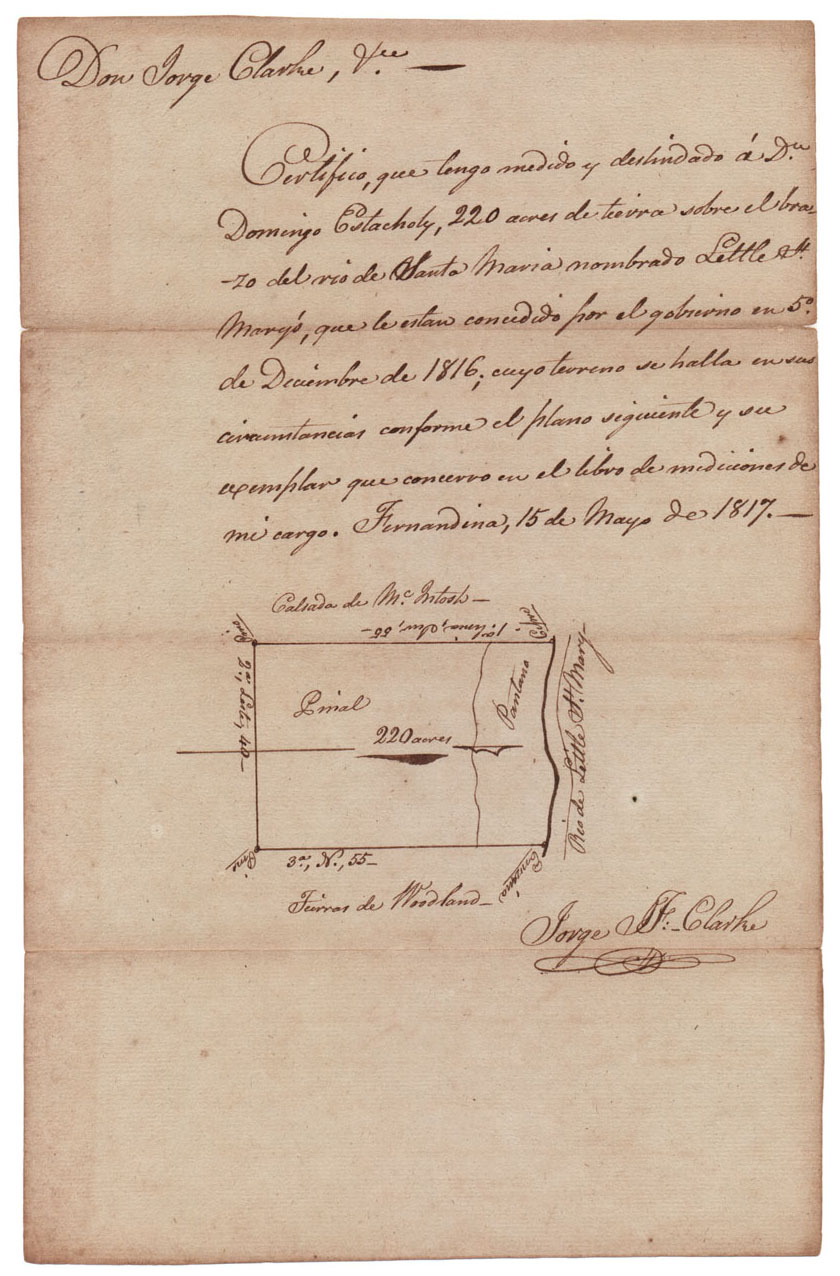 Don Jorge Clarke, &ce —
Certifico, que tengo medido y deslindado á Dn
Domingo Estacholy, 220 acres de tierra sobre el bra-
-zo del rio de Santa Maria nombrado Lettle St.
Mary's, que le estan concedido por el gobierno en 5o.
de Diciembre de 1816; cuyo terreno se halla en sus
circunstancias conforme el plano siguiente y su
exemplar que concervo en el libro de mediciones de
mi cargo. Fernandina, 15 de Mayo de 1817. —
Calsada de Mc. Intosh —
Pino
55
Pinal
Pantano
220 acres
40 —
Rio de Lettle St. Mary —
Pino
3a, N., 55 —
Tierras de Woodland —
Jorge J. F. Clarke